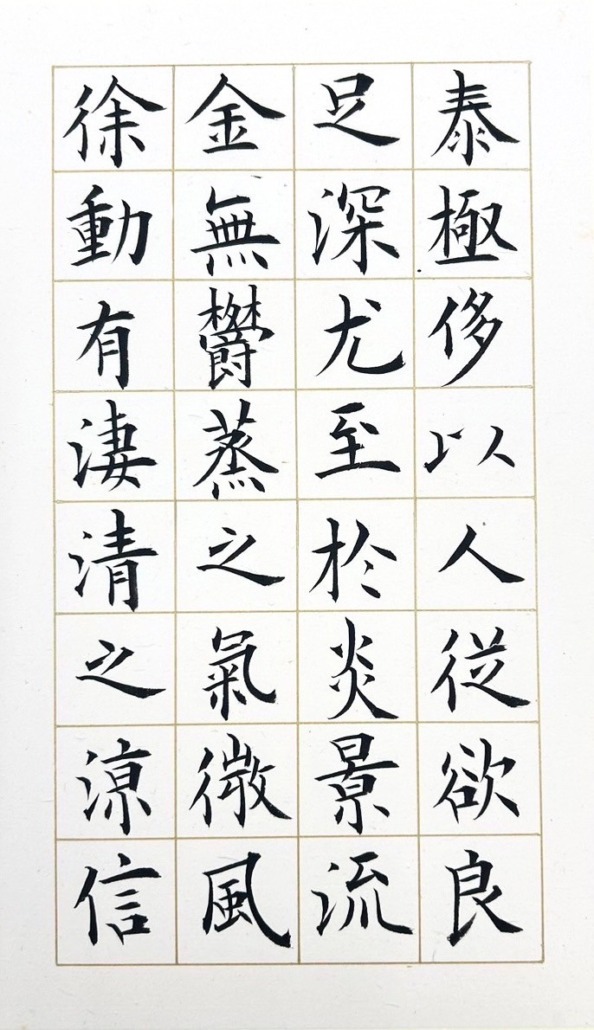 泰極侈以人從欲良
足深尤至於炎景流
金無欝蒸之氣微風
徐動有淒清之涼信